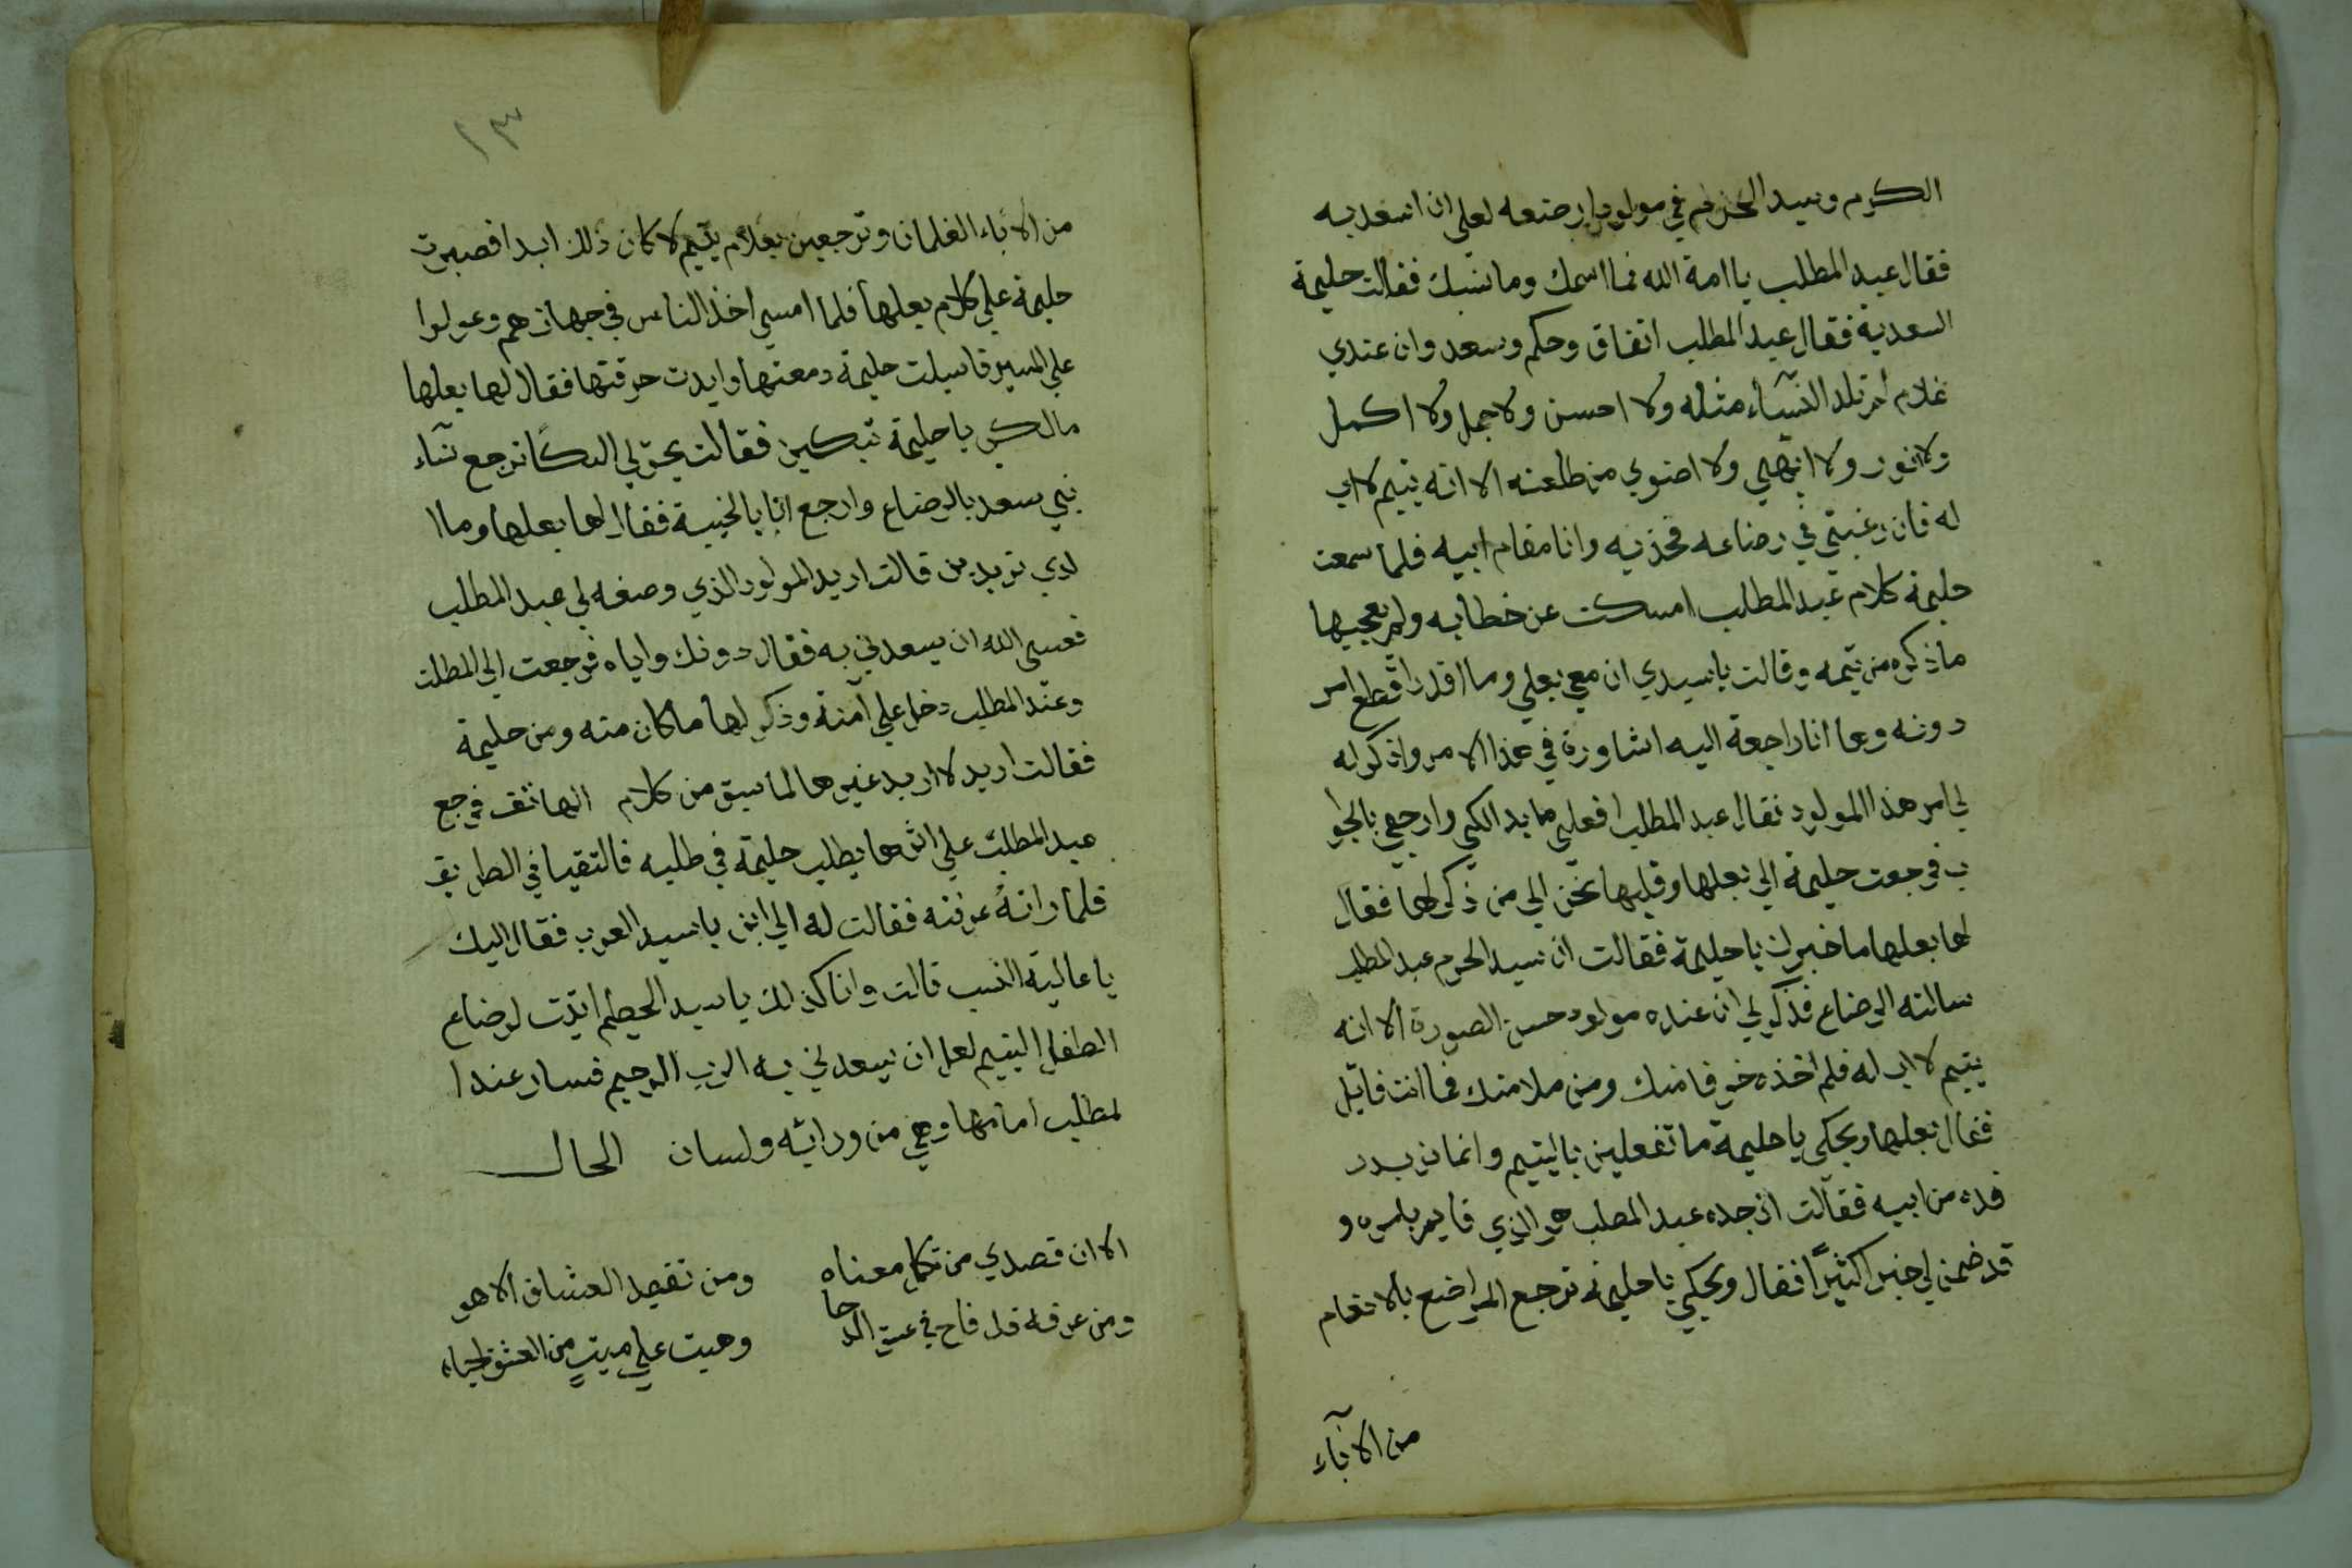 الكرم وسيد الحرم في مولود ارضعه لعلي ان اسعد به
فقال عبد المطلب يا امة الله فما اسمك وما نسبك فقالت حليمة
السعدية فقال عبد المطلب اتفاق وحكم وسعد وان عندي
غلام لم تلد النساء مثله ولا احسن ولا اجمل ولا اكمل
ولا انور ولا ابهي ولا اضوي من طلعته الا انه يتيم لا اب
له فان رغبتي في رضاعه فخذيه وانا مقام ابيه فلما سمعت
حليمة كلام عبد المطلب امسكت عن خطابه ولم يعجبها
ماذكره من يتمه وقالت ياسيدي ان معي بعلي وما اقدر اقطع امر
دونه وها انا راجعة اليه اشاوره في هذا الامر واذكر له
لي امر هذا المولود فقال عبد المطلب افعلي مابدالكي وارجعي بالجوا
ب فرجعت حليمة الي بعلها وقلبها يحن الي من ذكر لها فقال
لها بعلها ما خبرك يا حليمة فقالت ان سيد الحرم عبد المطلب
سالته الرضاع فذكر لي ان عنده مولود حسن الصورة الا انه
يتيم لا اب له فلم اخذه خوفا منك ومن ملامتك فما انت قايل
فقال بعلها ويحكي يا حليمة ما تفعلين باليتيم وانما نريد ر
فده من ابيه فقالت ان جده عبد المطلب هو الذي قايم بامره و
قد ضمن لي خيرا كثيرًا فقال ويحكي يا حليمة ترجع المراضع بالانعام
من الآبآء
١٣
من الاباء الغلمان وترجعين بغلام يتيم لا كان ذلك ابدا فصبرت
حليمة علي كلام بعلها فلما امسي اخذ الناس في جهازهم وعولوا
علي المسير فاسبلت حليمة دمعتها وابدت حرقتها فقال لها بعلها
مالكي يا حليمة تبكين فقالت يحق لي البكا ترجع نسآء
بني سعد بالرضاع وارجع انا بالخيبة فقال لها بعلها وما ا
لذي تريدين قالت اريد المولود الذي وصفه لي عبد المطلب
فعسي الله ان يسعدني به فقال دونك واياه فرجعت الي المطلب
وعند المطلب دخل علي آمنة وذكر لها ماكان منه ومن حليمة
فقالت اريد لا اريد غيرها لما سبق من كلام الهاتف فرجع
عبد المطلب علي اثرها يطلب حليمة في طلبه فالتقيا في الطريق
فلما راته عرفته فقالت له الي اين يا سيد العرب فقال اليك
يا عالية النسب قالت وانا كذلك يا سيد الحطيم اتيت لرضاع
الطفل اليتيم لعل ان يسعدني به الرب الرحيم فسار عند ا
لمطلب امامها وهي من ورائه ولسان الحال
الا ان قصدي من تكامل معناه ومن تقصد العشاق الا هو
ومن عرفه قد فاح في الدجا وهبت علي ميتٍ من العشق احياه